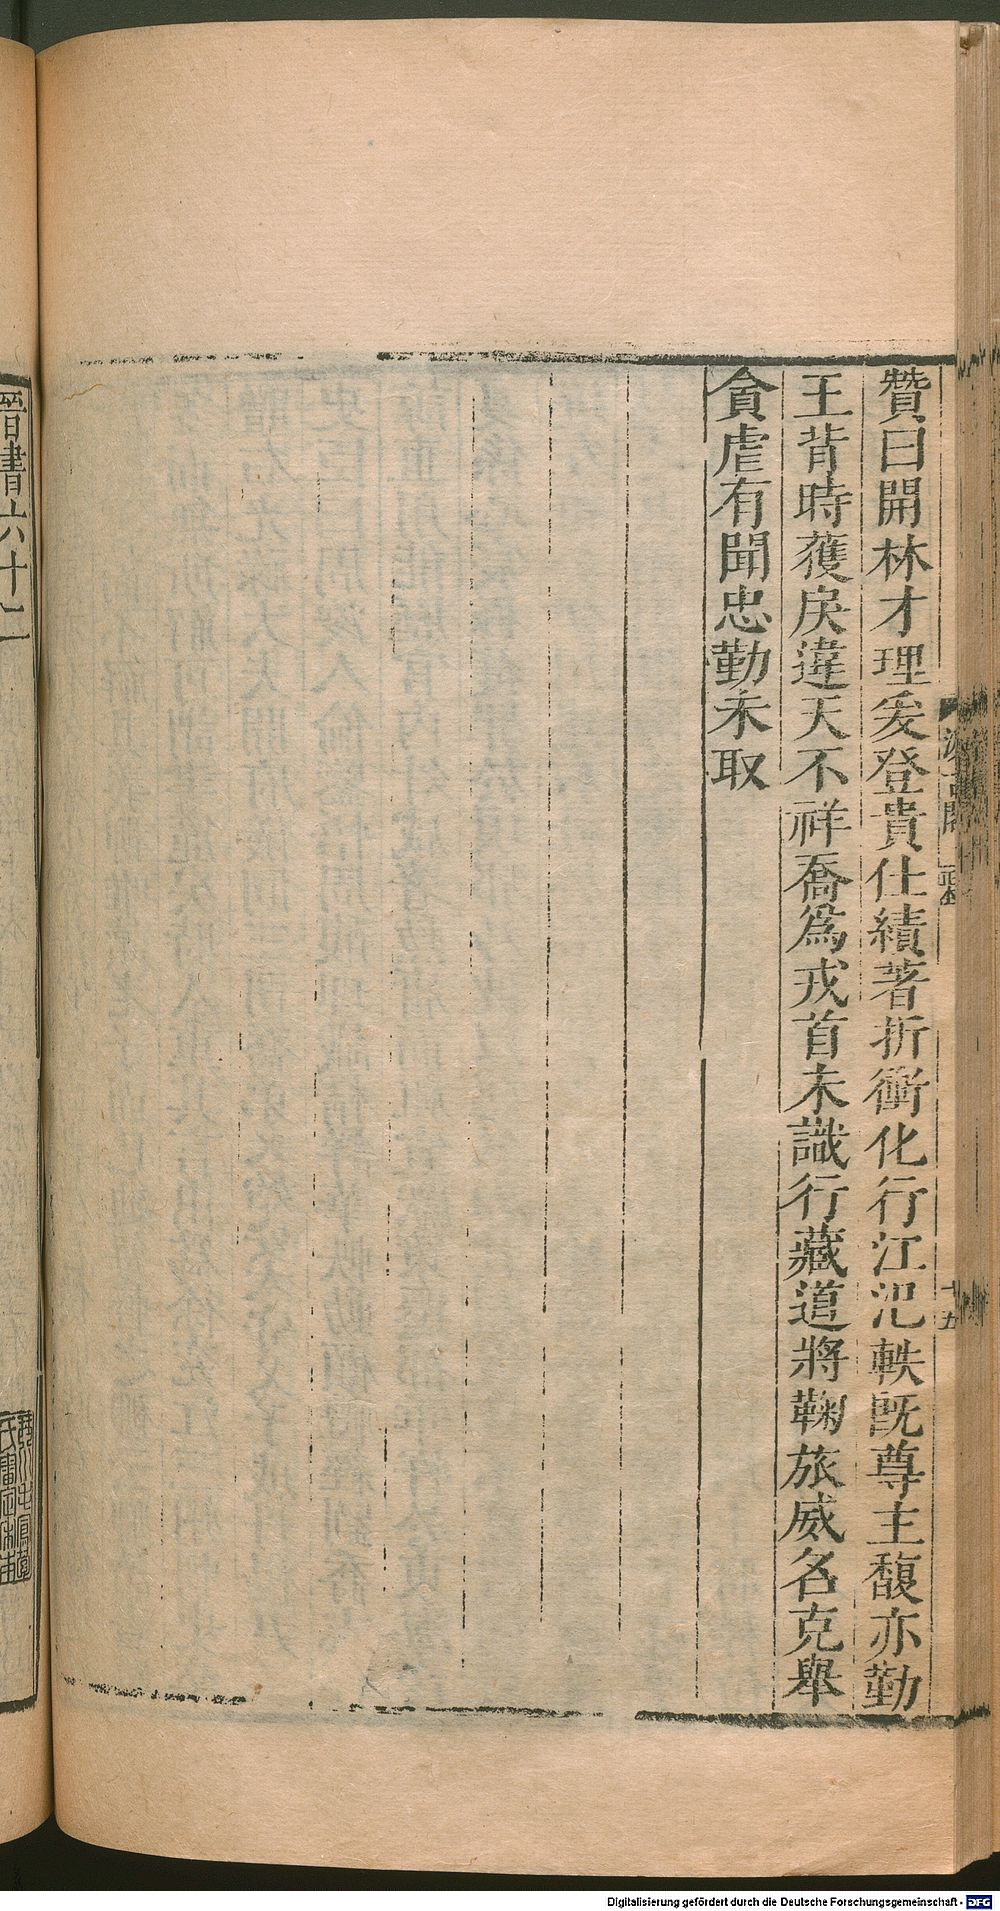 贊曰開林才理爰登貴仕績著折衝化行江汜軼既尊主馥亦勤
王背時獲戾違天不祥喬爲戎首未識行藏道將鞠旅威名克舉
貪虐有聞忠勤未取
汲古閣
十五
晉書六十二
Digitalisierung gefördert durch die Deutsche Forschungsgemeinschaft - DFG